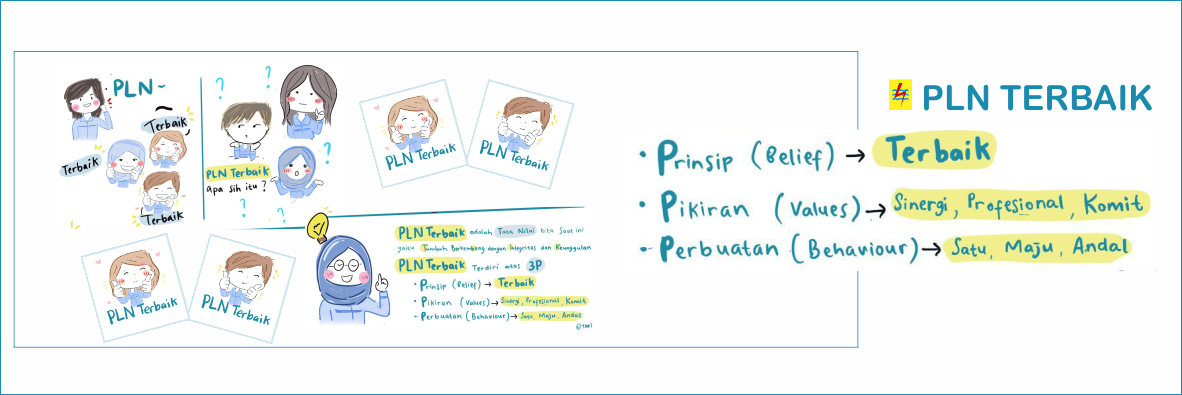 PLN~
Terbaik
Terbaik
Terbaik
PLN Terbaik
apa sih itu?
? ? ? ? ?
PLN Terbaik
PLN Terbaik
PLN Terbaik
PLN Terbaik
PLN Terbaik adalah Tata Nilai kita saat ini
yaitu Tumbuh Berkembang dengan Integritas dan Keunggulan
PLN Terbaik Terdiri atas 3P
• Prinsip (Belief) → Terbaik
• Pikiran (Values) → Sinergi, Profesional, Komit
• Perbuatan (Behaviour) → Satu, Maju, Andal
PLN TERBAIK
• Prinsip (Belief) → Terbaik
• Pikiran (Values) → Sinergi, Profesional, Komit
- Perbuatan (Behaviour) → Satu, Maju, Andal